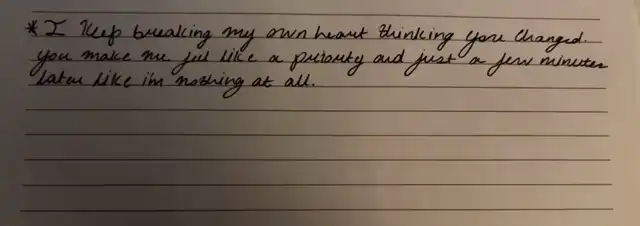 * I Keep breaking my own heart thinking you changed.
you make me feel like a priority and just a few minutes
later like im nothing at all.